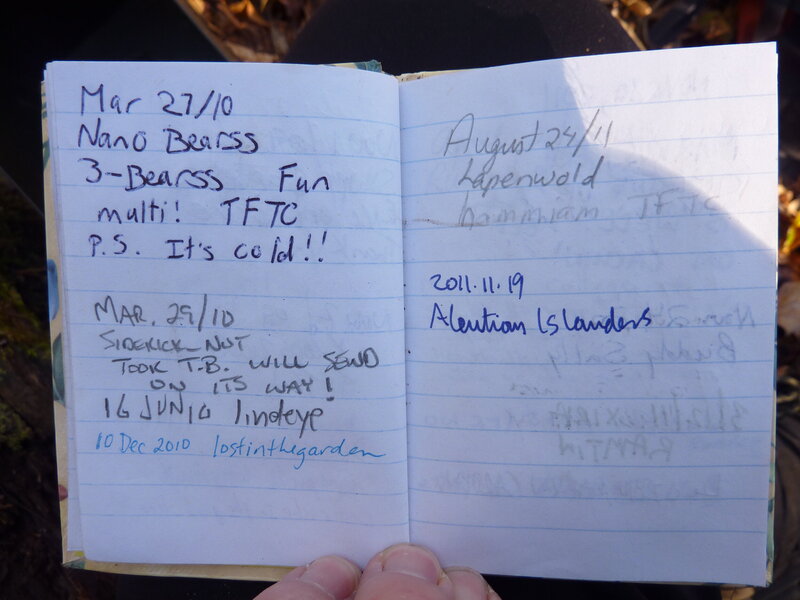 Mar 27/10
Nano Bearss
3-Bearss Fun
multi! TFTC
P.S. It's cold!!
MAR. 29/10
SIDEKICK_NUT
TOOK T.B. WILL SEND
ON ITS WAY!
16 JUN 10 lindeye
10 Dec 2010 lostinthegarden
August 24/11
Lapenwold
TFTC
2011.11.19
Aleutian Islanders